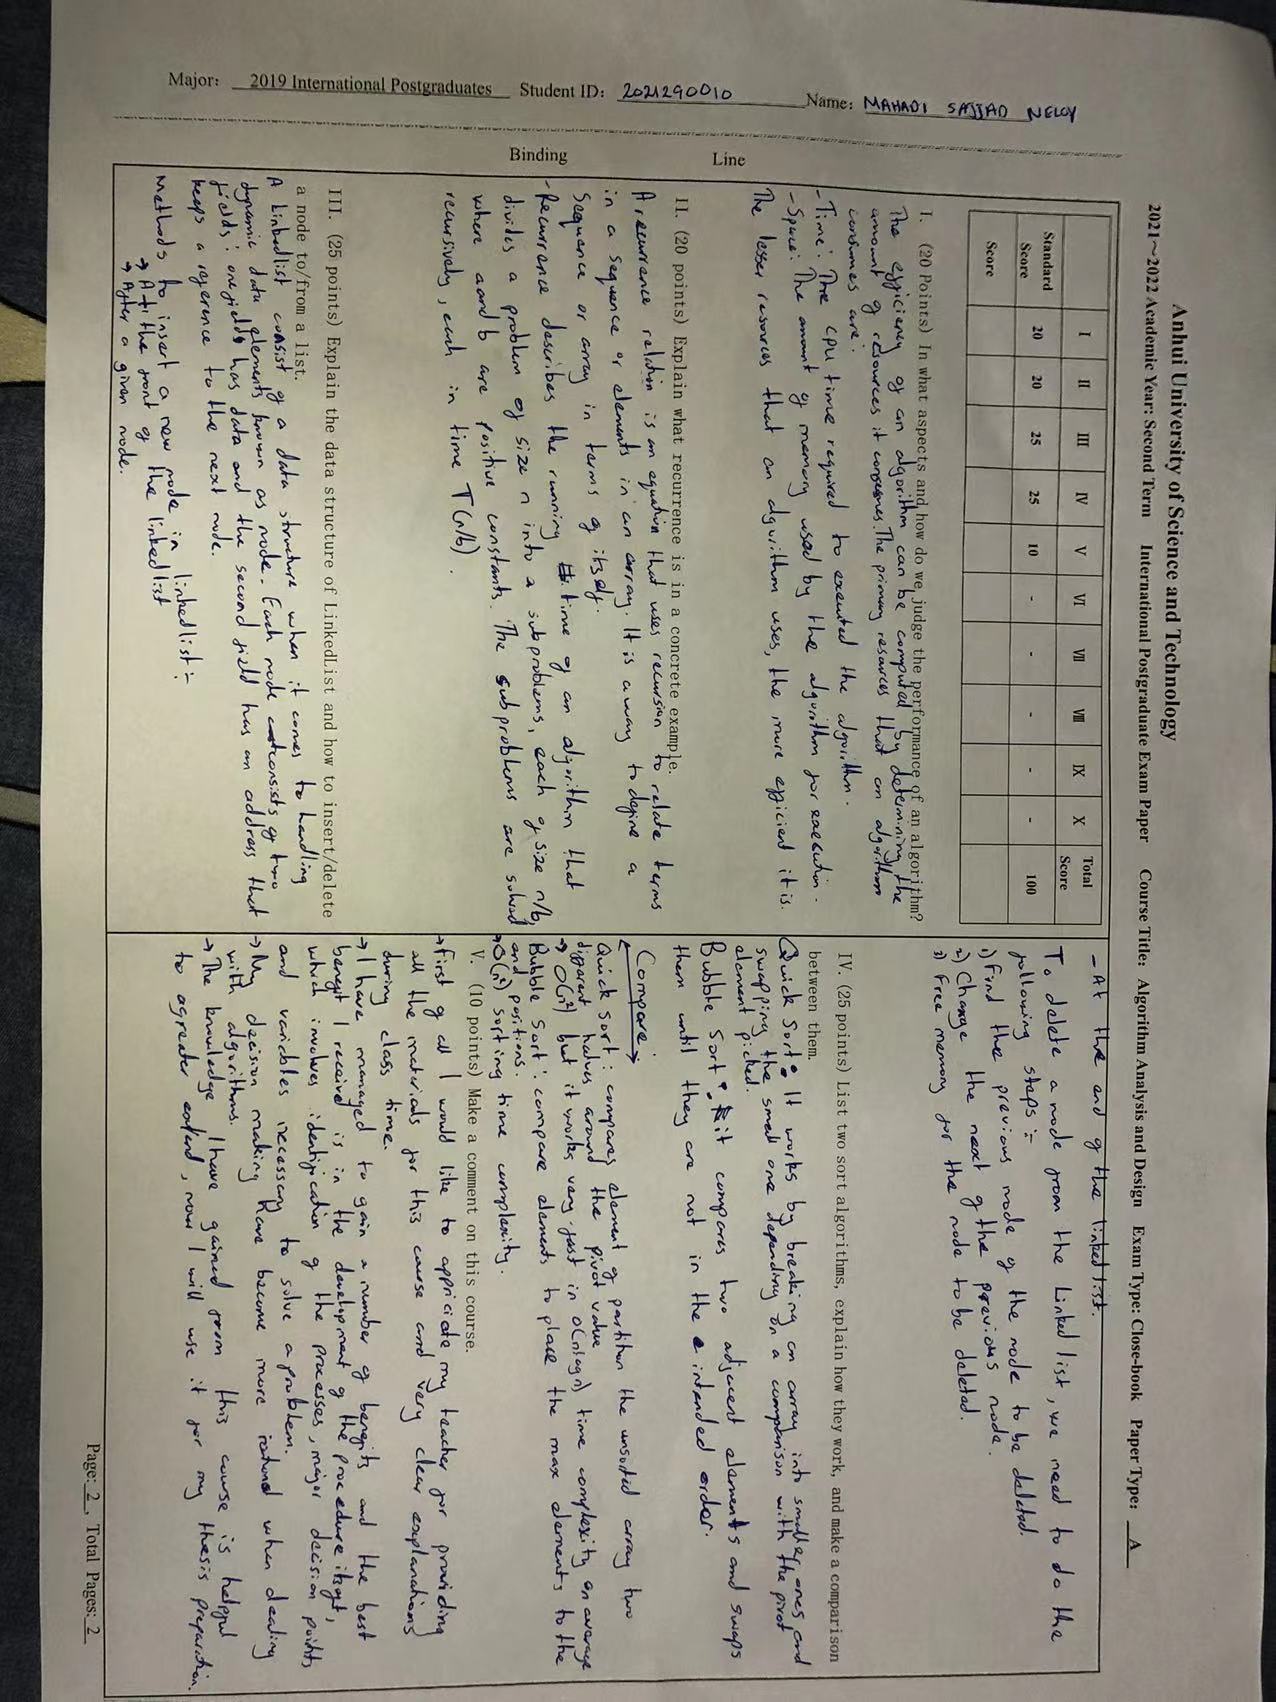 Major: 2019 International Postgraduates Student ID: 2021290010 Name: MAHADI SAJJAD NELOY
Binding Line
Anhui University of Science and Technology
2021~2022 Academic Year: Second Term International Postgraduate Exam Paper Course Title: Algorithm Analysis and Design Exam Type: Close-book Paper Type: A
I II III IV V VI VII VIII IX X Total Score
Standard Score 20 20 25 25 10 - - - - - 100
Score
I. (20 Points) In what aspects and how do we judge the performance of an algorithm?
The efficiency of an algorithm can be computed by determining the
amount of resources it consumes. The primary resources that an algorithm
consumes are:
- Time: The CPU time required to executed the algorithm.
- Space: The amount of memory used by the algorithm for execution.
The lesser resources that an algorithm uses, the more efficient it is.
II. (20 points) Explain what recurrence is in a concrete example.
A recurrence relation is an equation that uses recursion to relate terms
in a sequence or elements in an array. It is a way to define a
Sequence or array in terms of itself.
- Recurrence describes the running time of an algorithm that
divides a problem of size n into a subproblems, each of size n/b,
where a and b are positive constants. The subproblems are solved
recursively, each in time T(n/b).
III. (25 points) Explain the data structure of LinkedList and how to insert/delete
a node to/from a list.
A linkedlist consist of a data structure when it comes to handling
dynamic data elements known as node. Each node consists of two
fields: one field has data and the second field has an address that
keeps a reference to the next node.
Methods to insert a new node in linkedlist:-
→ At the front of the linkedlist
→ After a given node.
- At the end of the linked list.
To delete a node from the Linked list, we need to do the
following steps:-
1) Find the previous node of the node to be deleted.
2) Change the next of the previous node.
3) Free memory for the node to be deleted.
IV. (25 points) List two sort algorithms, explain how they work, and make a comparison
between them.
Quick Sort: It works by breaking an array into smaller ones and
swapping the small one depending on a comparison with the pivot
element picked.
Bubble Sort: it compares two adjacent elements and swaps
them until they are not in the intended order.
Compare:
Quick Sort: compares element of partition the unsorted array two
different halves around the pivot value
→ O(n²) but it works very fast in O(nlogn) time complexity on average
Bubble Sort: compare elements to place the max elements to the
end positions.
→ O(n²) sorting time complexity.
V. (10 points) Make a comment on this course.
→ First of all I would like to appriciate my teacher for providing
all the materials for this course and very clear explanations
during class time.
→ I have managed to gain a number of benefits and the best
benefit I received is in the development of the procedure itself,
which involves identification of the processes, major decision points,
and variables necessary to solve a problem.
→ My decision making have become more rational when dealing
with algorithms.
→ The knowledge I have gained from this course is helpful
to agreater extend, now I will use it for my thesis preparation.
Page: 2, Total Pages: 2